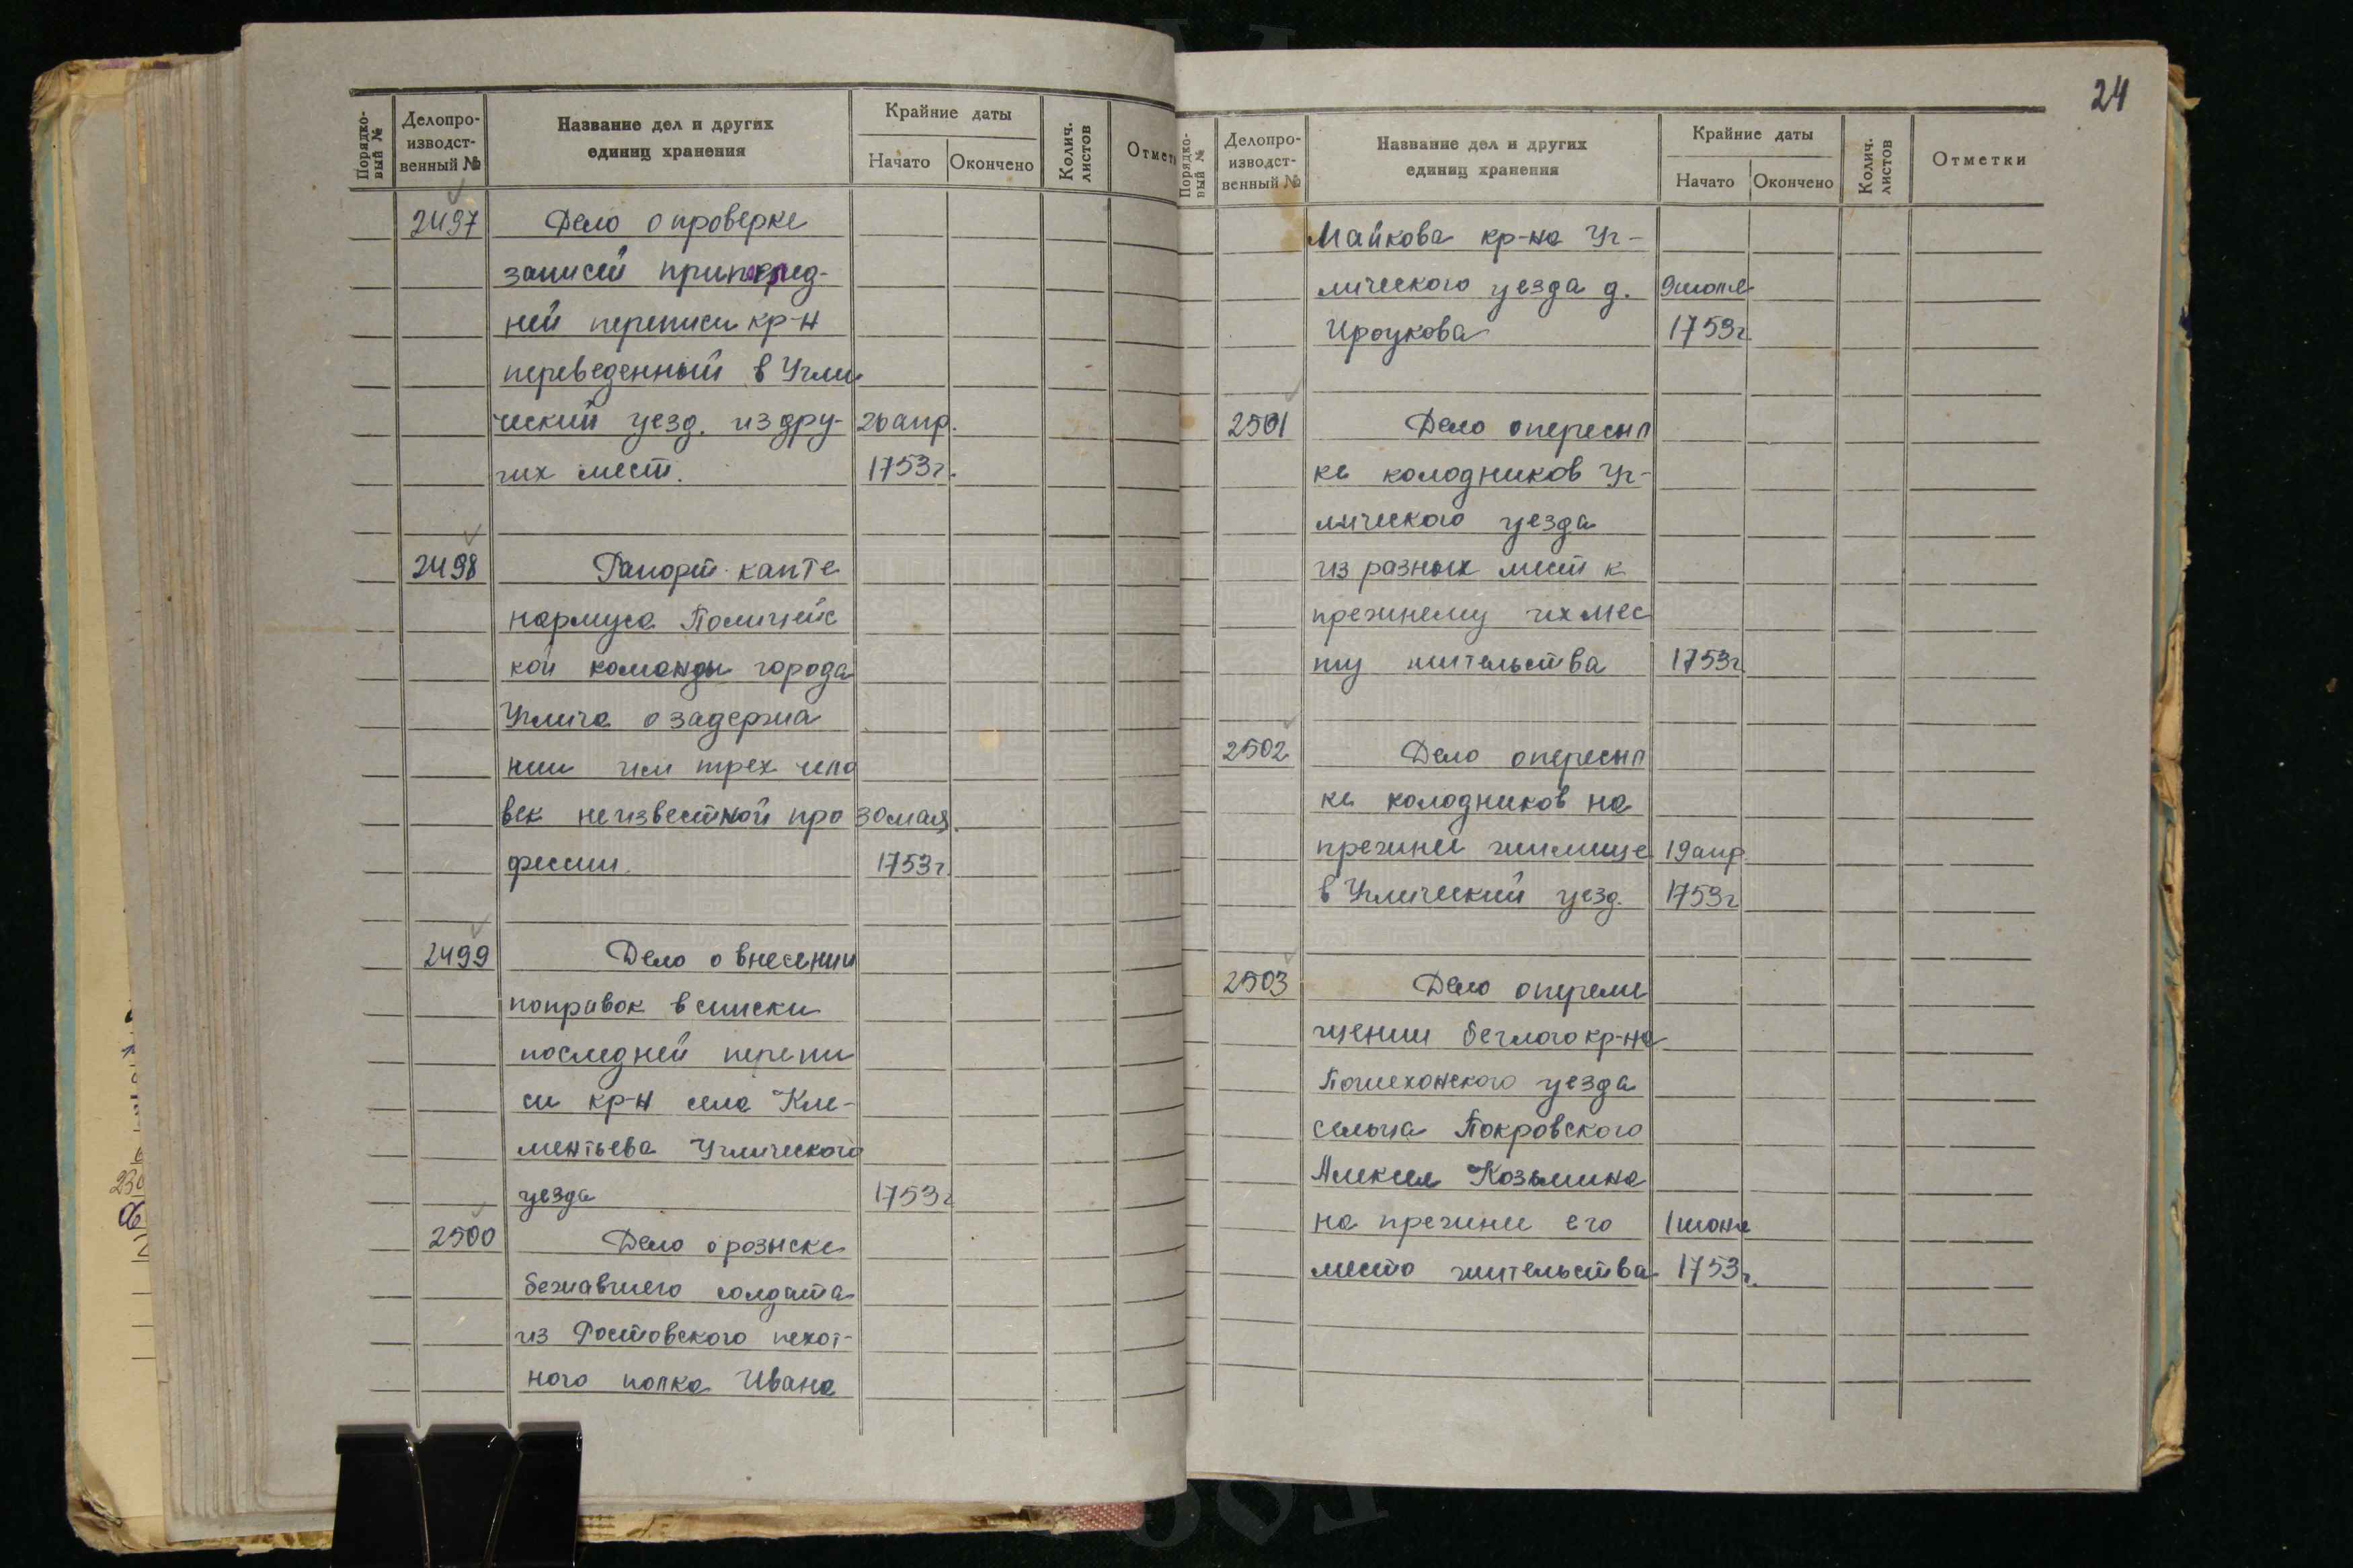 Порядко-
вый №
Делопро-
изводст-
венный №
Название дел и других
единиц хранения
Крайние даты
Начато
Окончено
Колич.
листов
Отметк
2497
Дело о проверке
записей при
ней переписи кр-н
переведенный в Угли
ческий уезд. из дру- 26 апр.
гих мест. 1753г.
2498
Рапорт капте
нармуса Полицейс
кой команды города
Углича о задержа
нии им трех чело
век неизвестной про 30 мая.
фессии. 1753г.
2499
Дело о внесении
поправок в списки
последней перепи
си кр-н села Кле-
ментьева Углического
уезда 1753г
2500
Дело о розыске
бежавшего солдата
из Ростовского пехот-
ного полка Ивана
24
Порядко-
вый №
Делопро-
изводст-
венный №
Название дел и других
единиц хранения
Крайние даты
Начато
Окончено
Колич.
листов
Отметки
Майкова кр-на Уг-
лического уезда д. 9
1753г.
2501
Дело о пересыл
ке колодников Уг-
лического уезда
из разных мест к
прежнему их мес
ту жительства 1753г
2502
Дело о пересыл
ке колодников на
прежнее жилище 19 апр.
в Углический уезд. 1753г
2503
Дело о переме
щении беглого кр-на
Пошехонского уезда
сельца Покровского
Алексея Козьмина
на прежнее его 1 июня
место жительства 1753г.